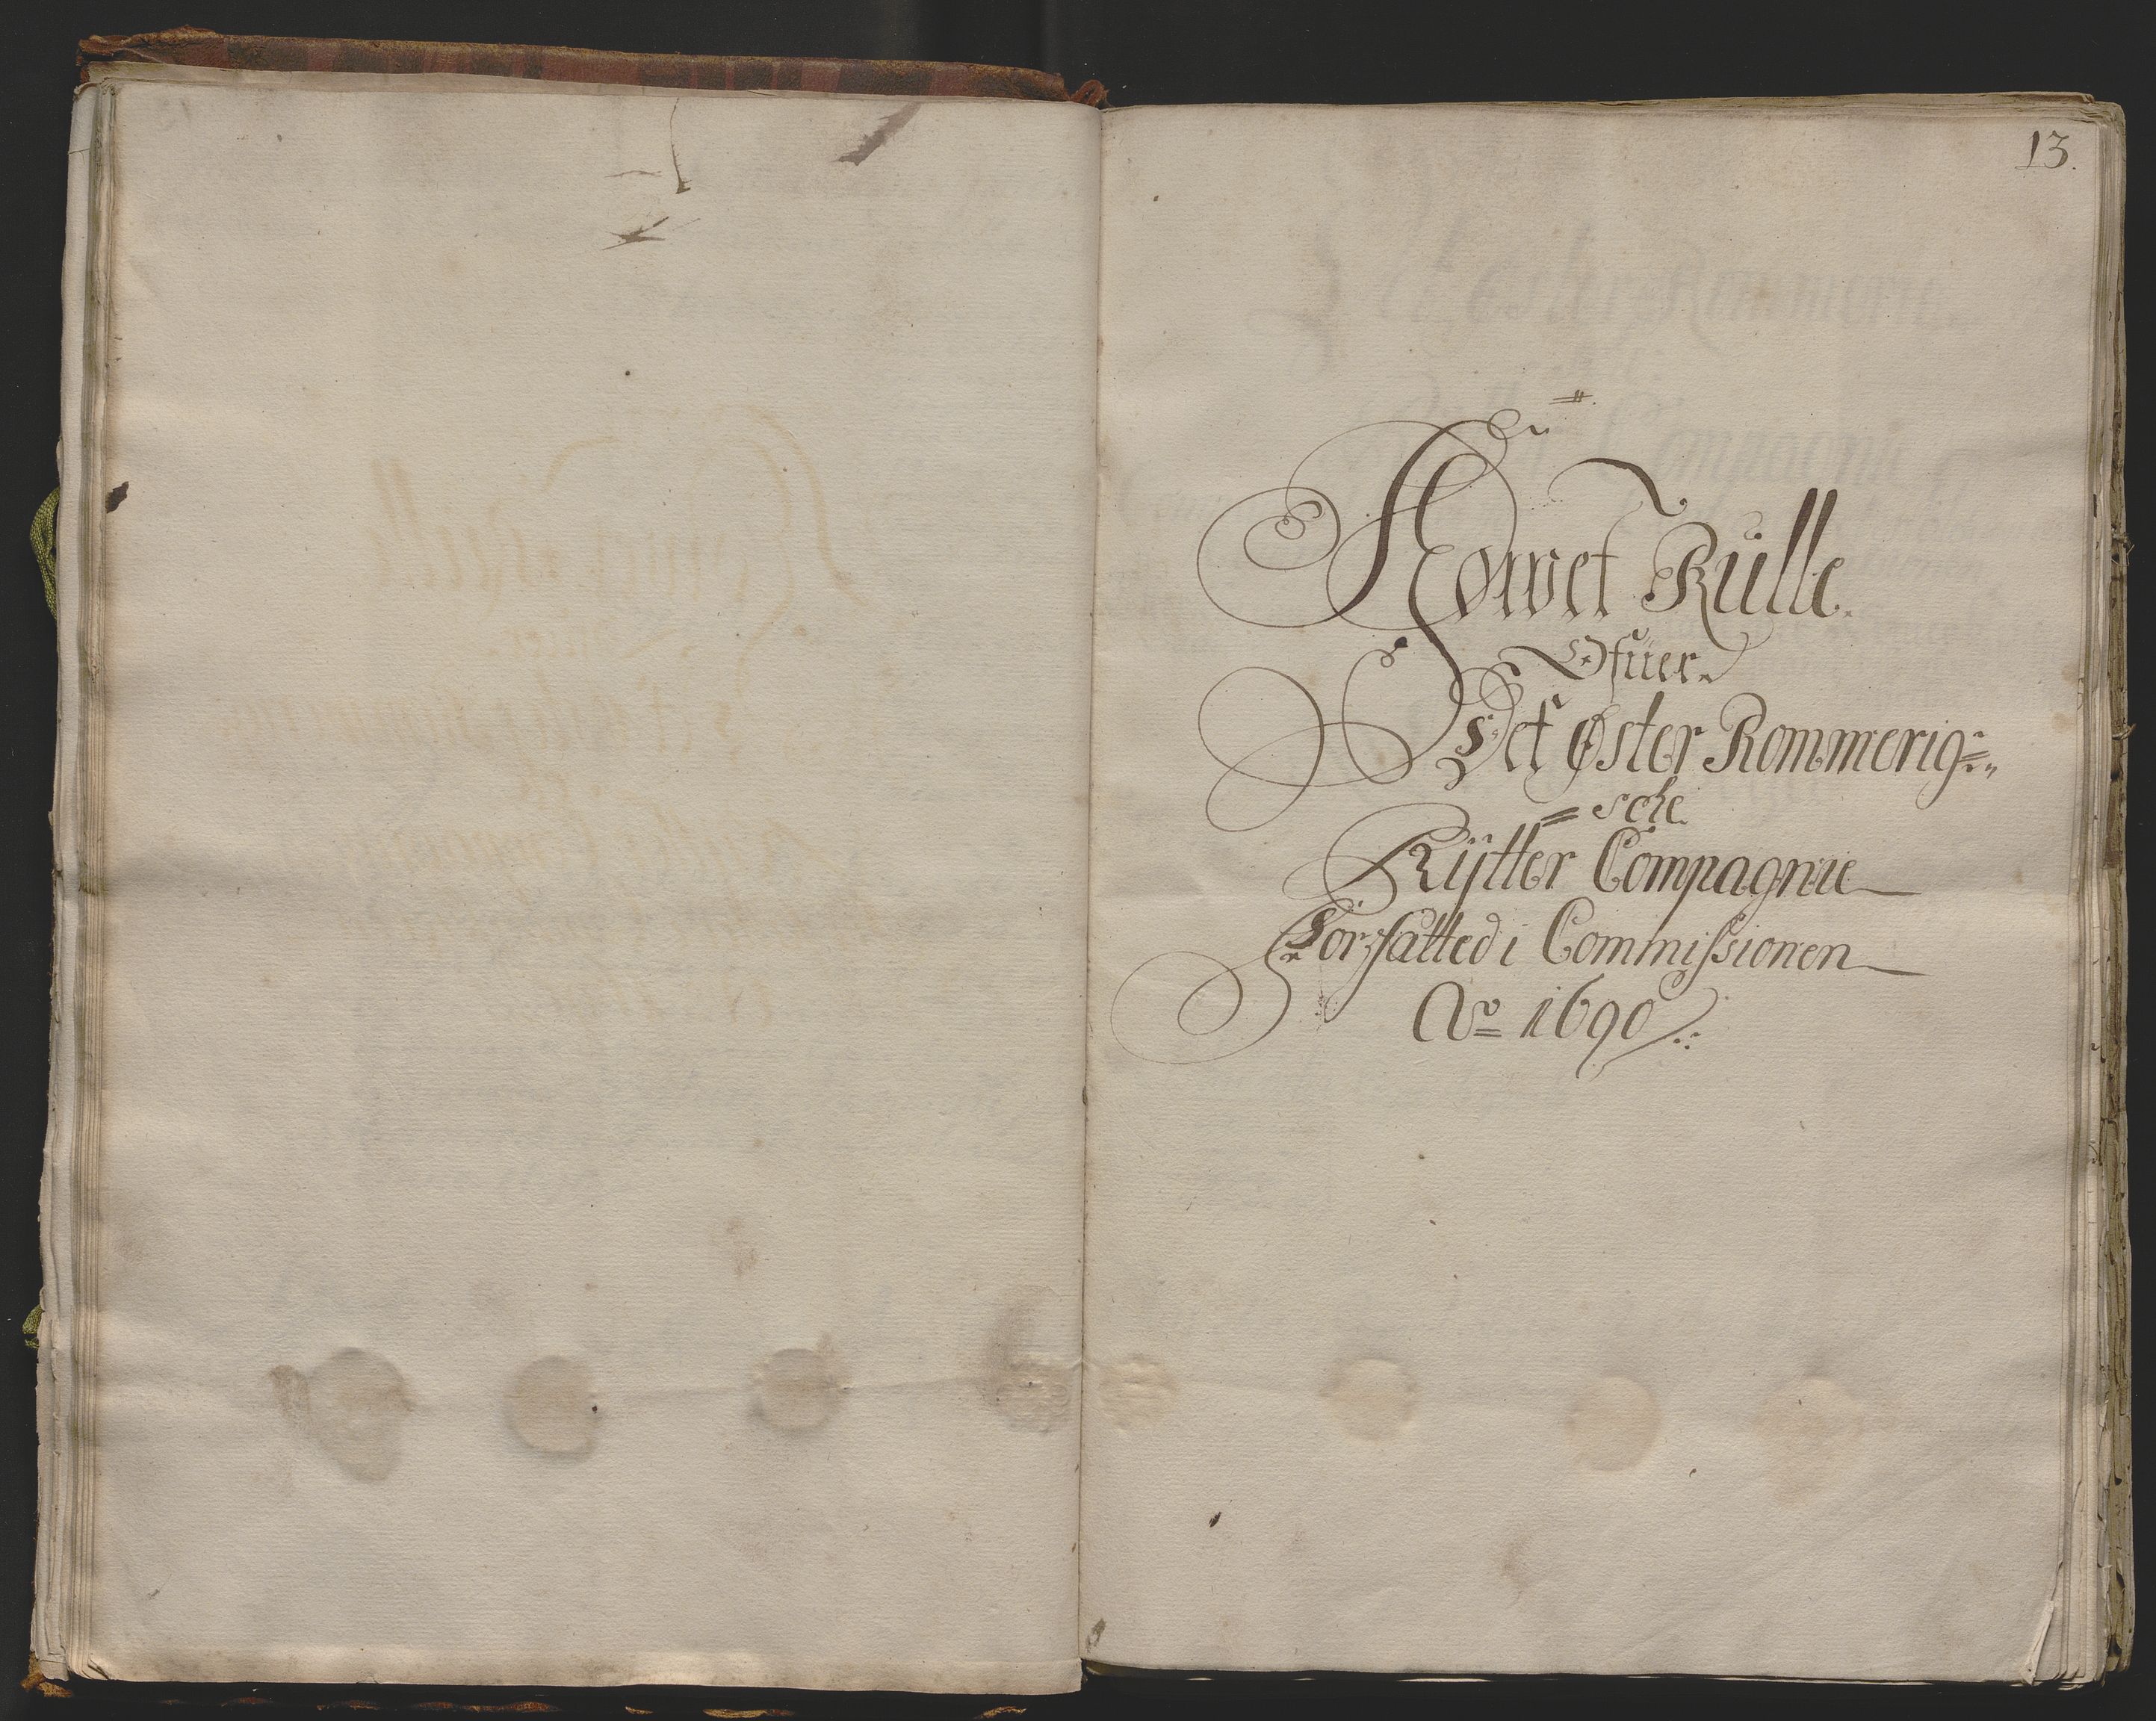 13.
Howet Rülle
Ofuer
Det Øster Rommerig=
=sche
Rÿtter Compagnie
Forfatted i Commissionen
Ao 1690